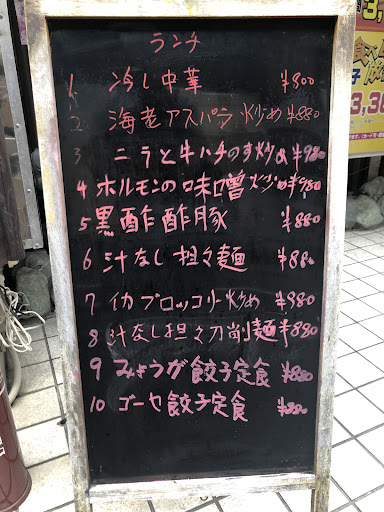 ランチ
1 冷し中華 ¥800
2 海老アスパラ炒め ¥880
3 ニラと牛ハチのす炒め ¥980
4 ホルモンの味噌炒め ¥980
5 黒酢酢豚 ¥880
6 汁なし担々麺 ¥880
7 イカブロッコリー炒め ¥980
8 汁なし担々刀削麺 ¥880
9 みょうが餃子定食 ¥880
10 ゴーヤ餃子定食 ¥880